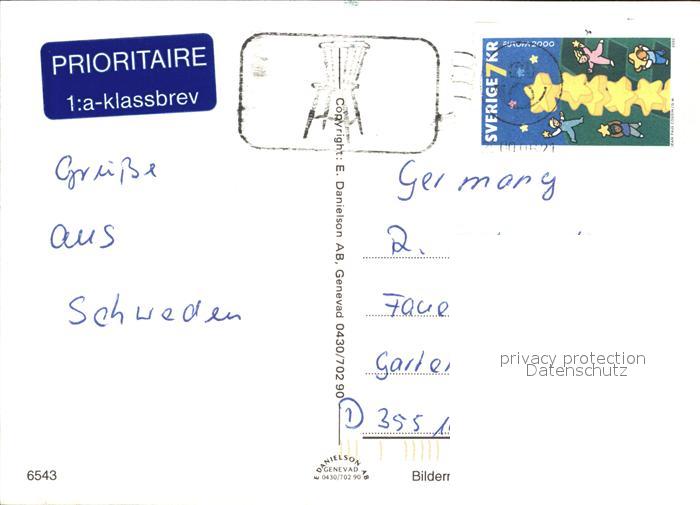 PRIORITAIRE
1:a-klassbrev
SVERIGE 7 KR
EUROPA 2000
Grüße
aus
Schweden
Copyright: E. Danielson AB, Genevad 0430/702 90
Germany
R.
Garten
D 355
privacy protection
Datenschutz
6543
E DANIELSON AB
GENEVAD
0430/702 90
Bilderr